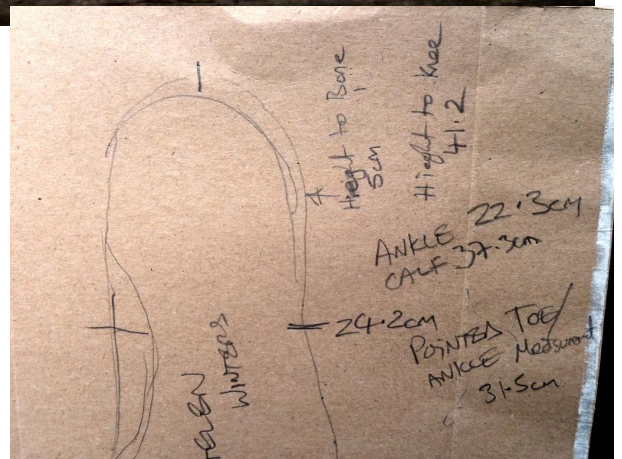 Hieght to Bone
5cm
Hieght to Knee
41.2
ANKLE 22.3cm
CALF 37.3cm
24.2cm
POINTED TOE/
ANKLE Measurment
31.5cm
WINTERS